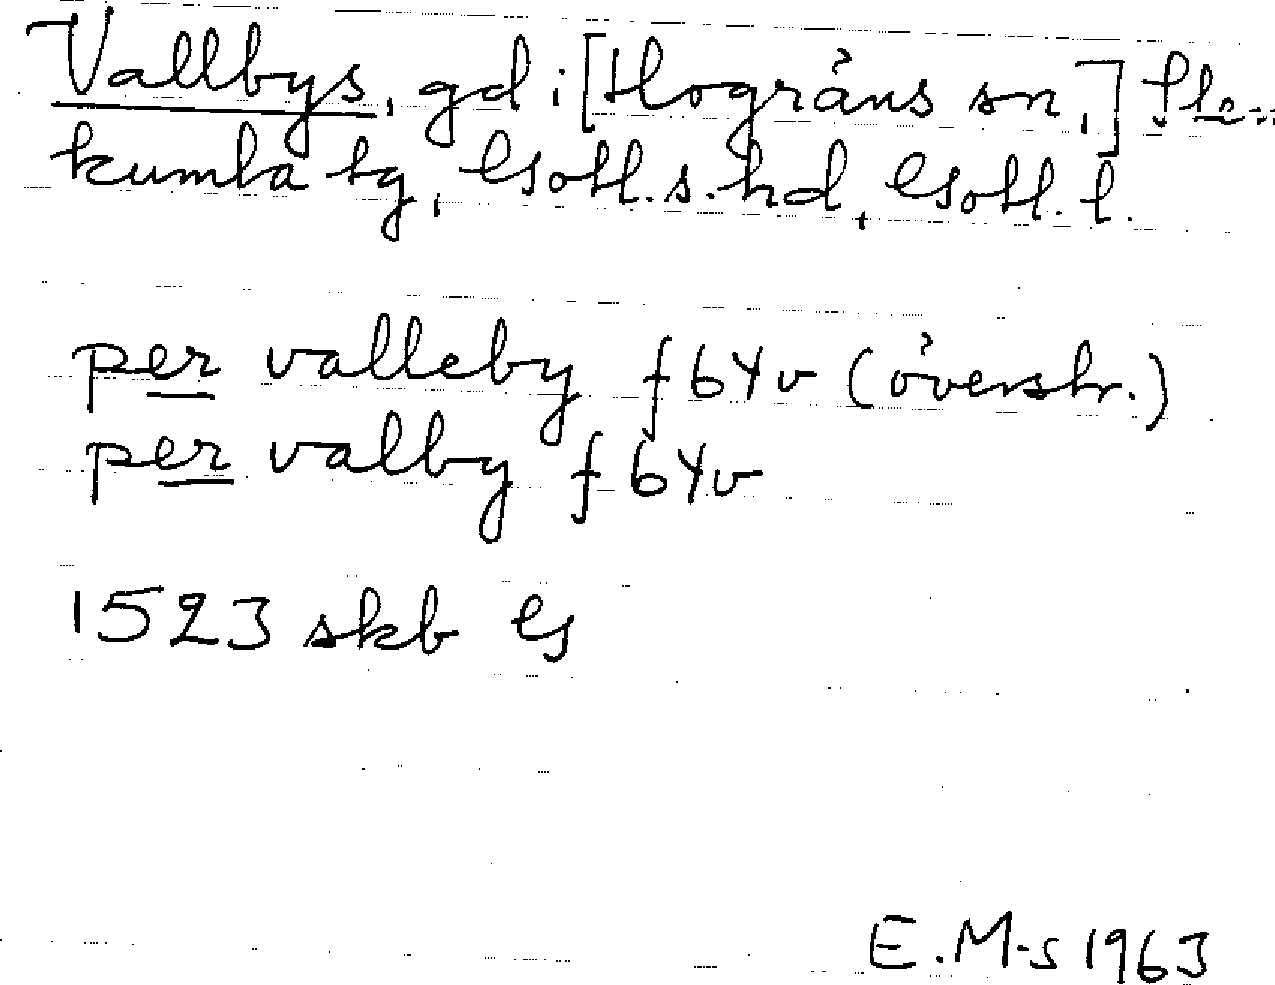 Vallbys, gd i [Hogräns sn,] Sten-
kumla tg, Gotl. s. hd, Gotl. l.
per valleby f 64v (överstr.)
per valby f 64v
1523 skb G
E. M-s 1963